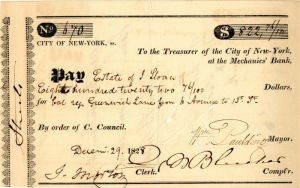 No 670
$822,76/100
CITY OF NEW-YORK, ss.
To the Treasurer of the City of New-York,
at the Mechanics' Bank.
Pay Estate of J Sloan
Eight hundred twenty two 76/100 Dollars,
for Greenwich Lane from 6 Avenue to 15. St.
By order of C. Council.
Wm Paulding Mayor.
Decem. 29. 1828
J. Morton Clerk.
Compt'r.